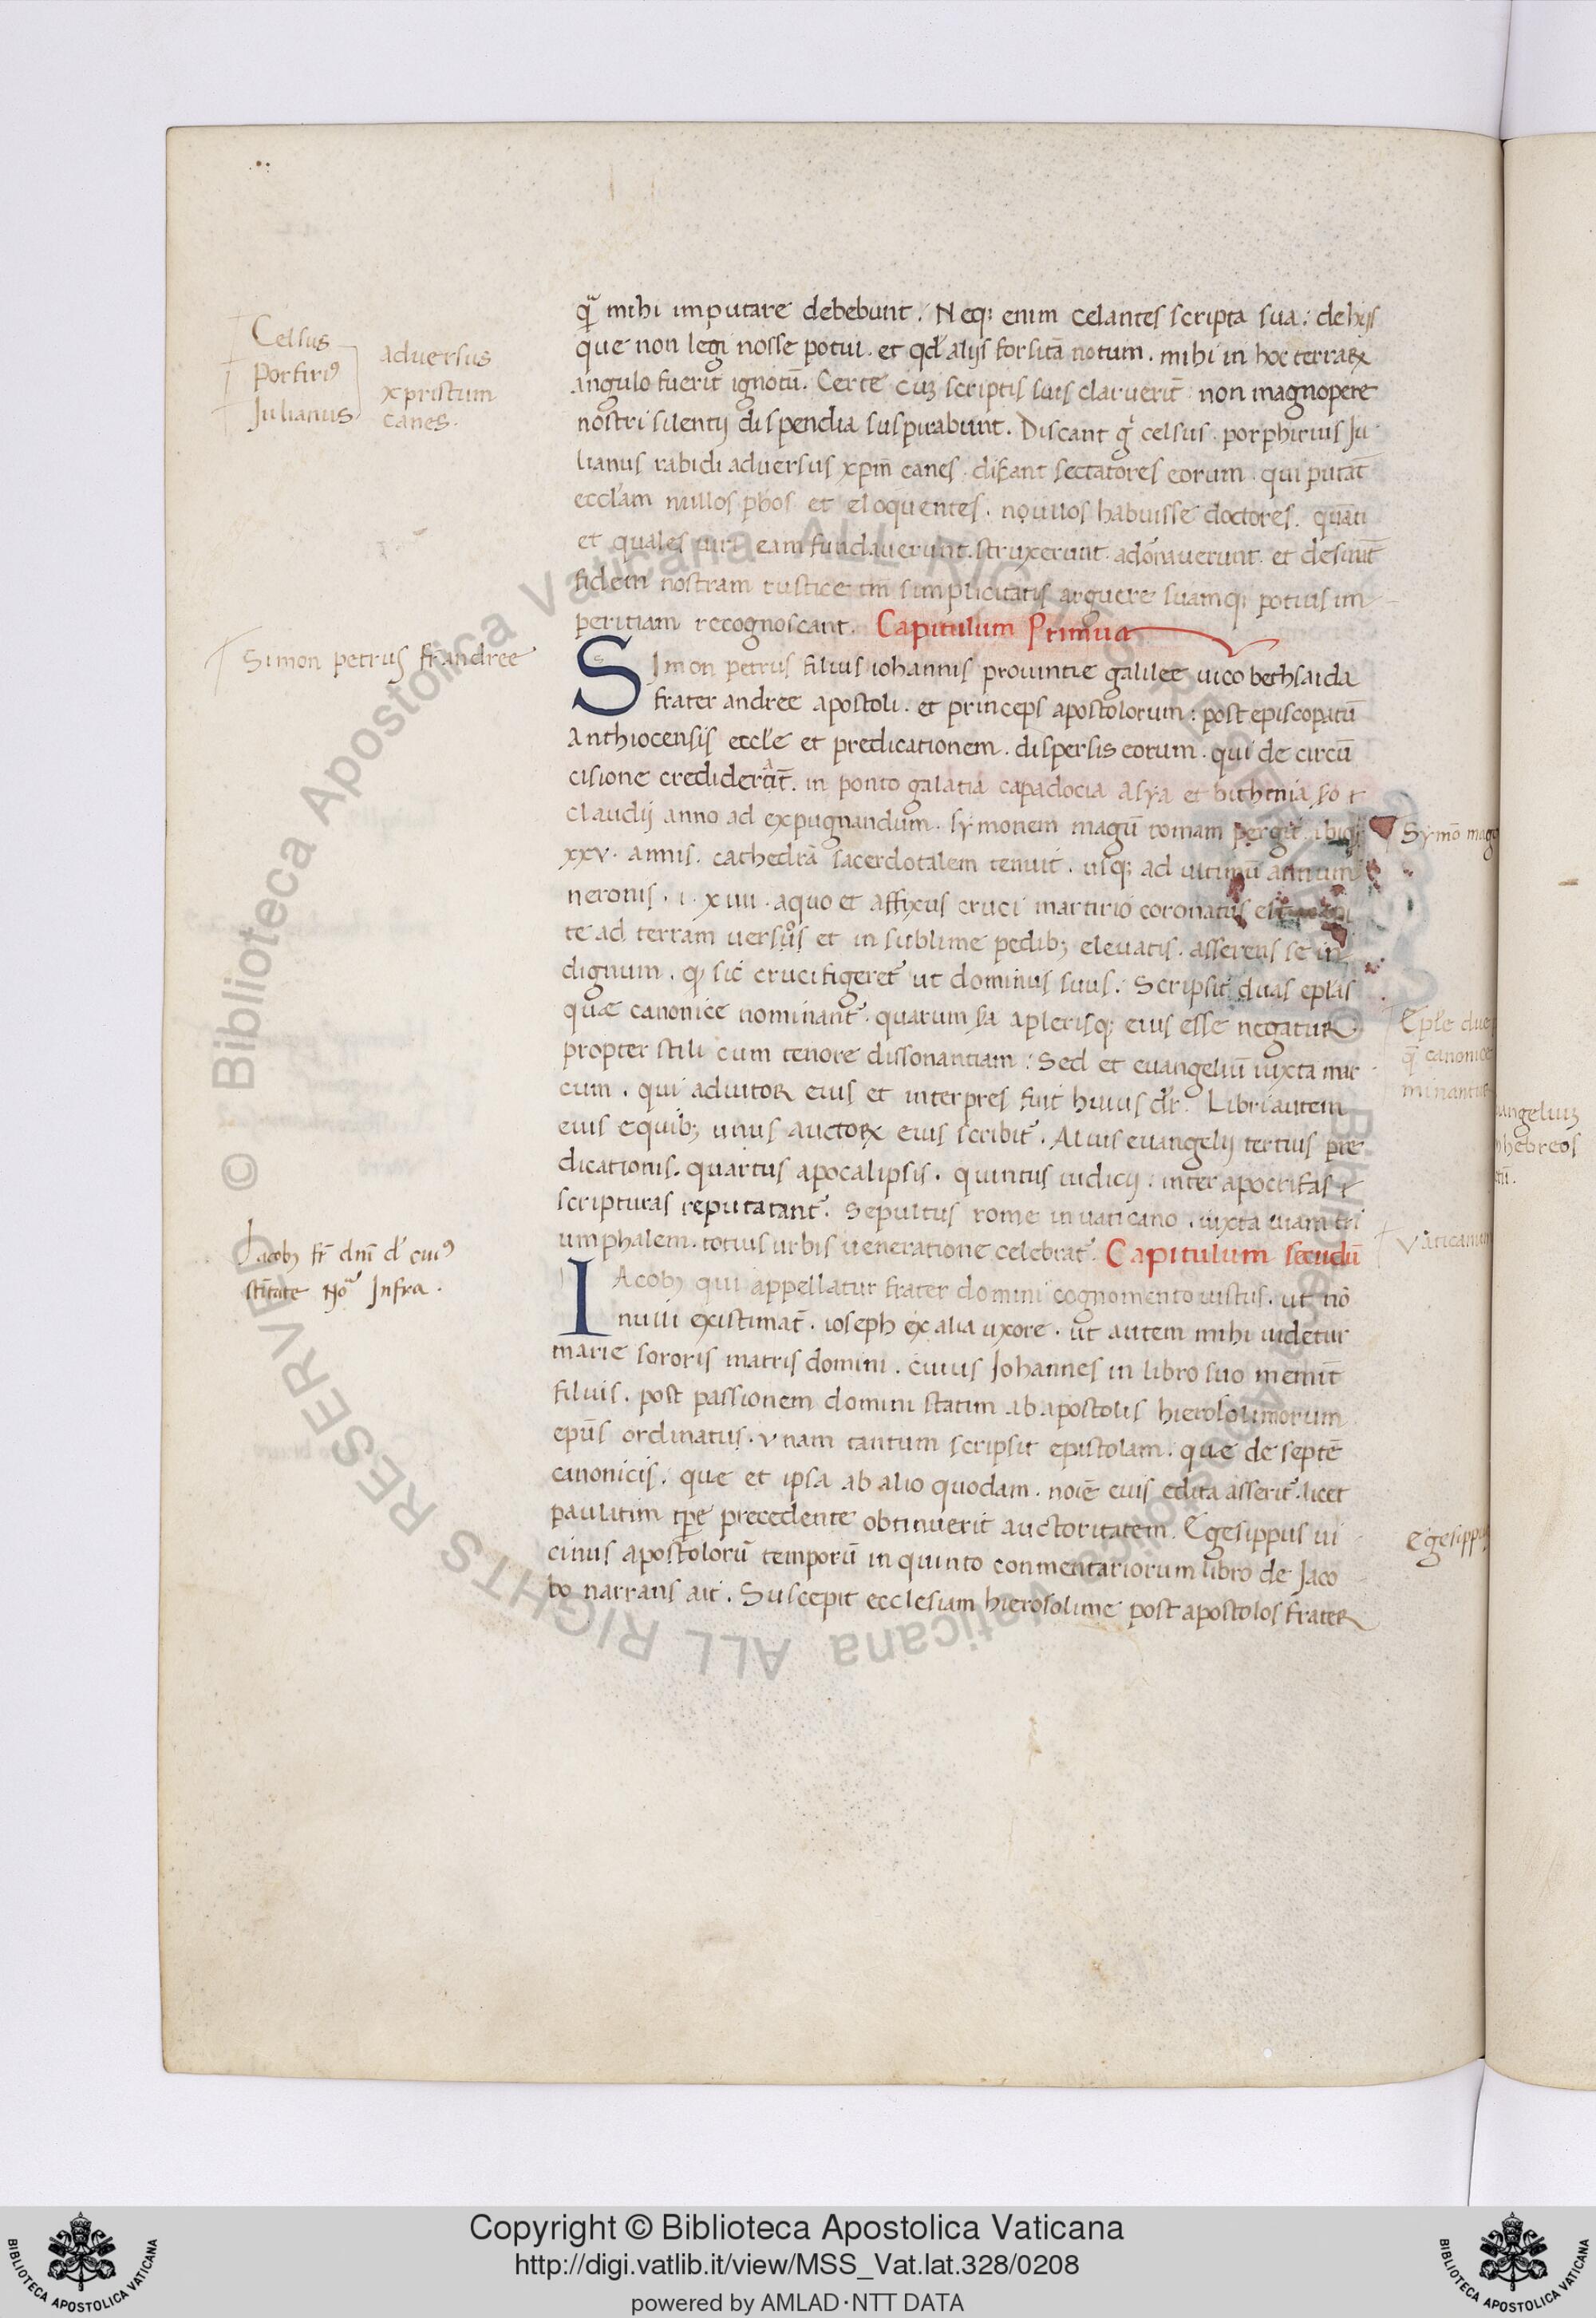 Celsus
Porfiri9
Julianus
adversus
xpristum
canes.
Simon petrus fr andree
Jacob3 fr̄ dni d' cui9
qͣ mihi imputare debebunt. Neq; enim celantes scripta sua: de hijs
que non legi nosse potui. et qd' alijs forsitā notum. mihi in hoc terraꝝ
angulo fuerit ignotū. Certe cuȝ scriptis suis claruerit̄ non magnopere
nostri silentij dispendia suspirabunt. Discant gͦ celsus. porphirius Ju
lianus rabidi adversus xpm̄ canes. discant sectatores eorum. qui putāt
eccl'am nullos phos et eloquentes. nou nullos habuisse doctores. quāti
et quales viri eam fundaverunt. struxerunt. adornaverunt. et desināt
fidem nostram rustice tm̄ simplicitatis arguere suamq; potius im
peritiam recognoscant. Capitulum Primum
Simon petrus filius iohannis provintie galilee vico bethsaida
frater andree apostoli. et princeps apostolorum: post episcopatū
Anthiocensis eccl'e et predicationem. dispersis eorum. qui de circū
cisione crediderāt. in ponto galatia capadocia asya et bithinia
claudij anno ad expugnandum. symonem magū romam pergit. ibiq;
xxv. annis. cathedrā sacerdotalem tenuit. usq; ad ultimū annum
neronis. i. xiiii. a quo et affixus cruci martirio coronatus est
te ad terram versus et in sublime pedib; elevatis. asserens se in
dignum. qͣ sic crucifigeret᷑ ut dominus suus. Scripsit duas epl'as
quæ canonice nominant᷑. quarum sa a plerisq; eius esse negatur
propter stili cum tenore dissonantiam: Sed et euangeliū iuxta mar
cum. qui aduitor eius et interpres fuit huius dr̄. Libri autem
eius e quib; unus auctorꝝ eius scribit᷑. Alius evangelij tertius pre
dicationis. quartus apocalipsis. quintus iudicij. inter apocrifas
scripturas reputatant᷑. Sepultus rome in vaticano. iuxta viam tri
umphalem. totius urbis veneratione celebrat᷑. Capitulum secūdū
IAcob; qui appellatur frater domini cognomento iustus. ut nō
nulli existimāt. ioseph ex alia uxore. ut autem mihi videtur
marie sororis matris domini. cuius Johannes in libro suo meminit
filius. post passionem domini statim ab apostolis hierosolimorum
epūs ordinatus. vnam tantum scripsit epistolam. quæ de septē
canonicis. quæ et ipsa ab alio quodam. noīe eius edita asserit᷑. licet
paulatim tpe precedente obtinuerit auctoritatem. Egesippus vi
cinus apostolorū temporū in quinto conmentariorum libro de Jaco
bo narrans ait. Suscepit ecclesiam hierosolime post apostolos frater
Symō mag
Epl'e due
q̄ canonice
minantur
Vaticanum
Egesippus
angelium
hebreos
Copyright © Biblioteca Apostolica Vaticana
http://digi.vatlib.it/view/MSS_Vat.lat.328/0208
powered by AMLAD·NTT DATA
BIBLIOTECA APOSTOLICA VATICANA
BIBLIOTECA APOSTOLICA VATICANA
© Biblioteca Apostolica Vaticana ALL RIGHTS RESERVED
© Biblioteca Apostolica Vaticana ALL RIGHTS RESERVED